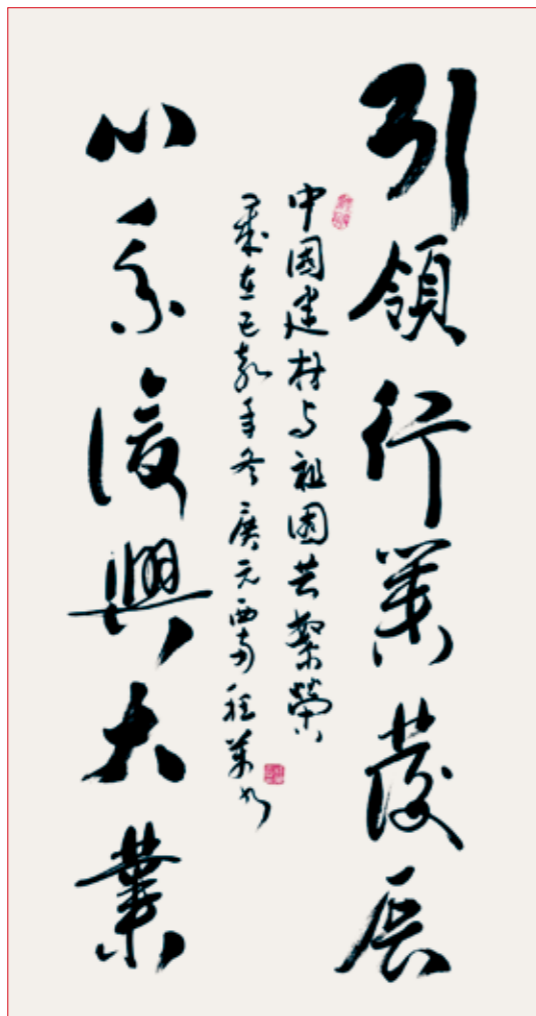 引領行業發展
中國建材与祖國共繁榮
歲在己亥年冬廣元西南程
心系復興大業